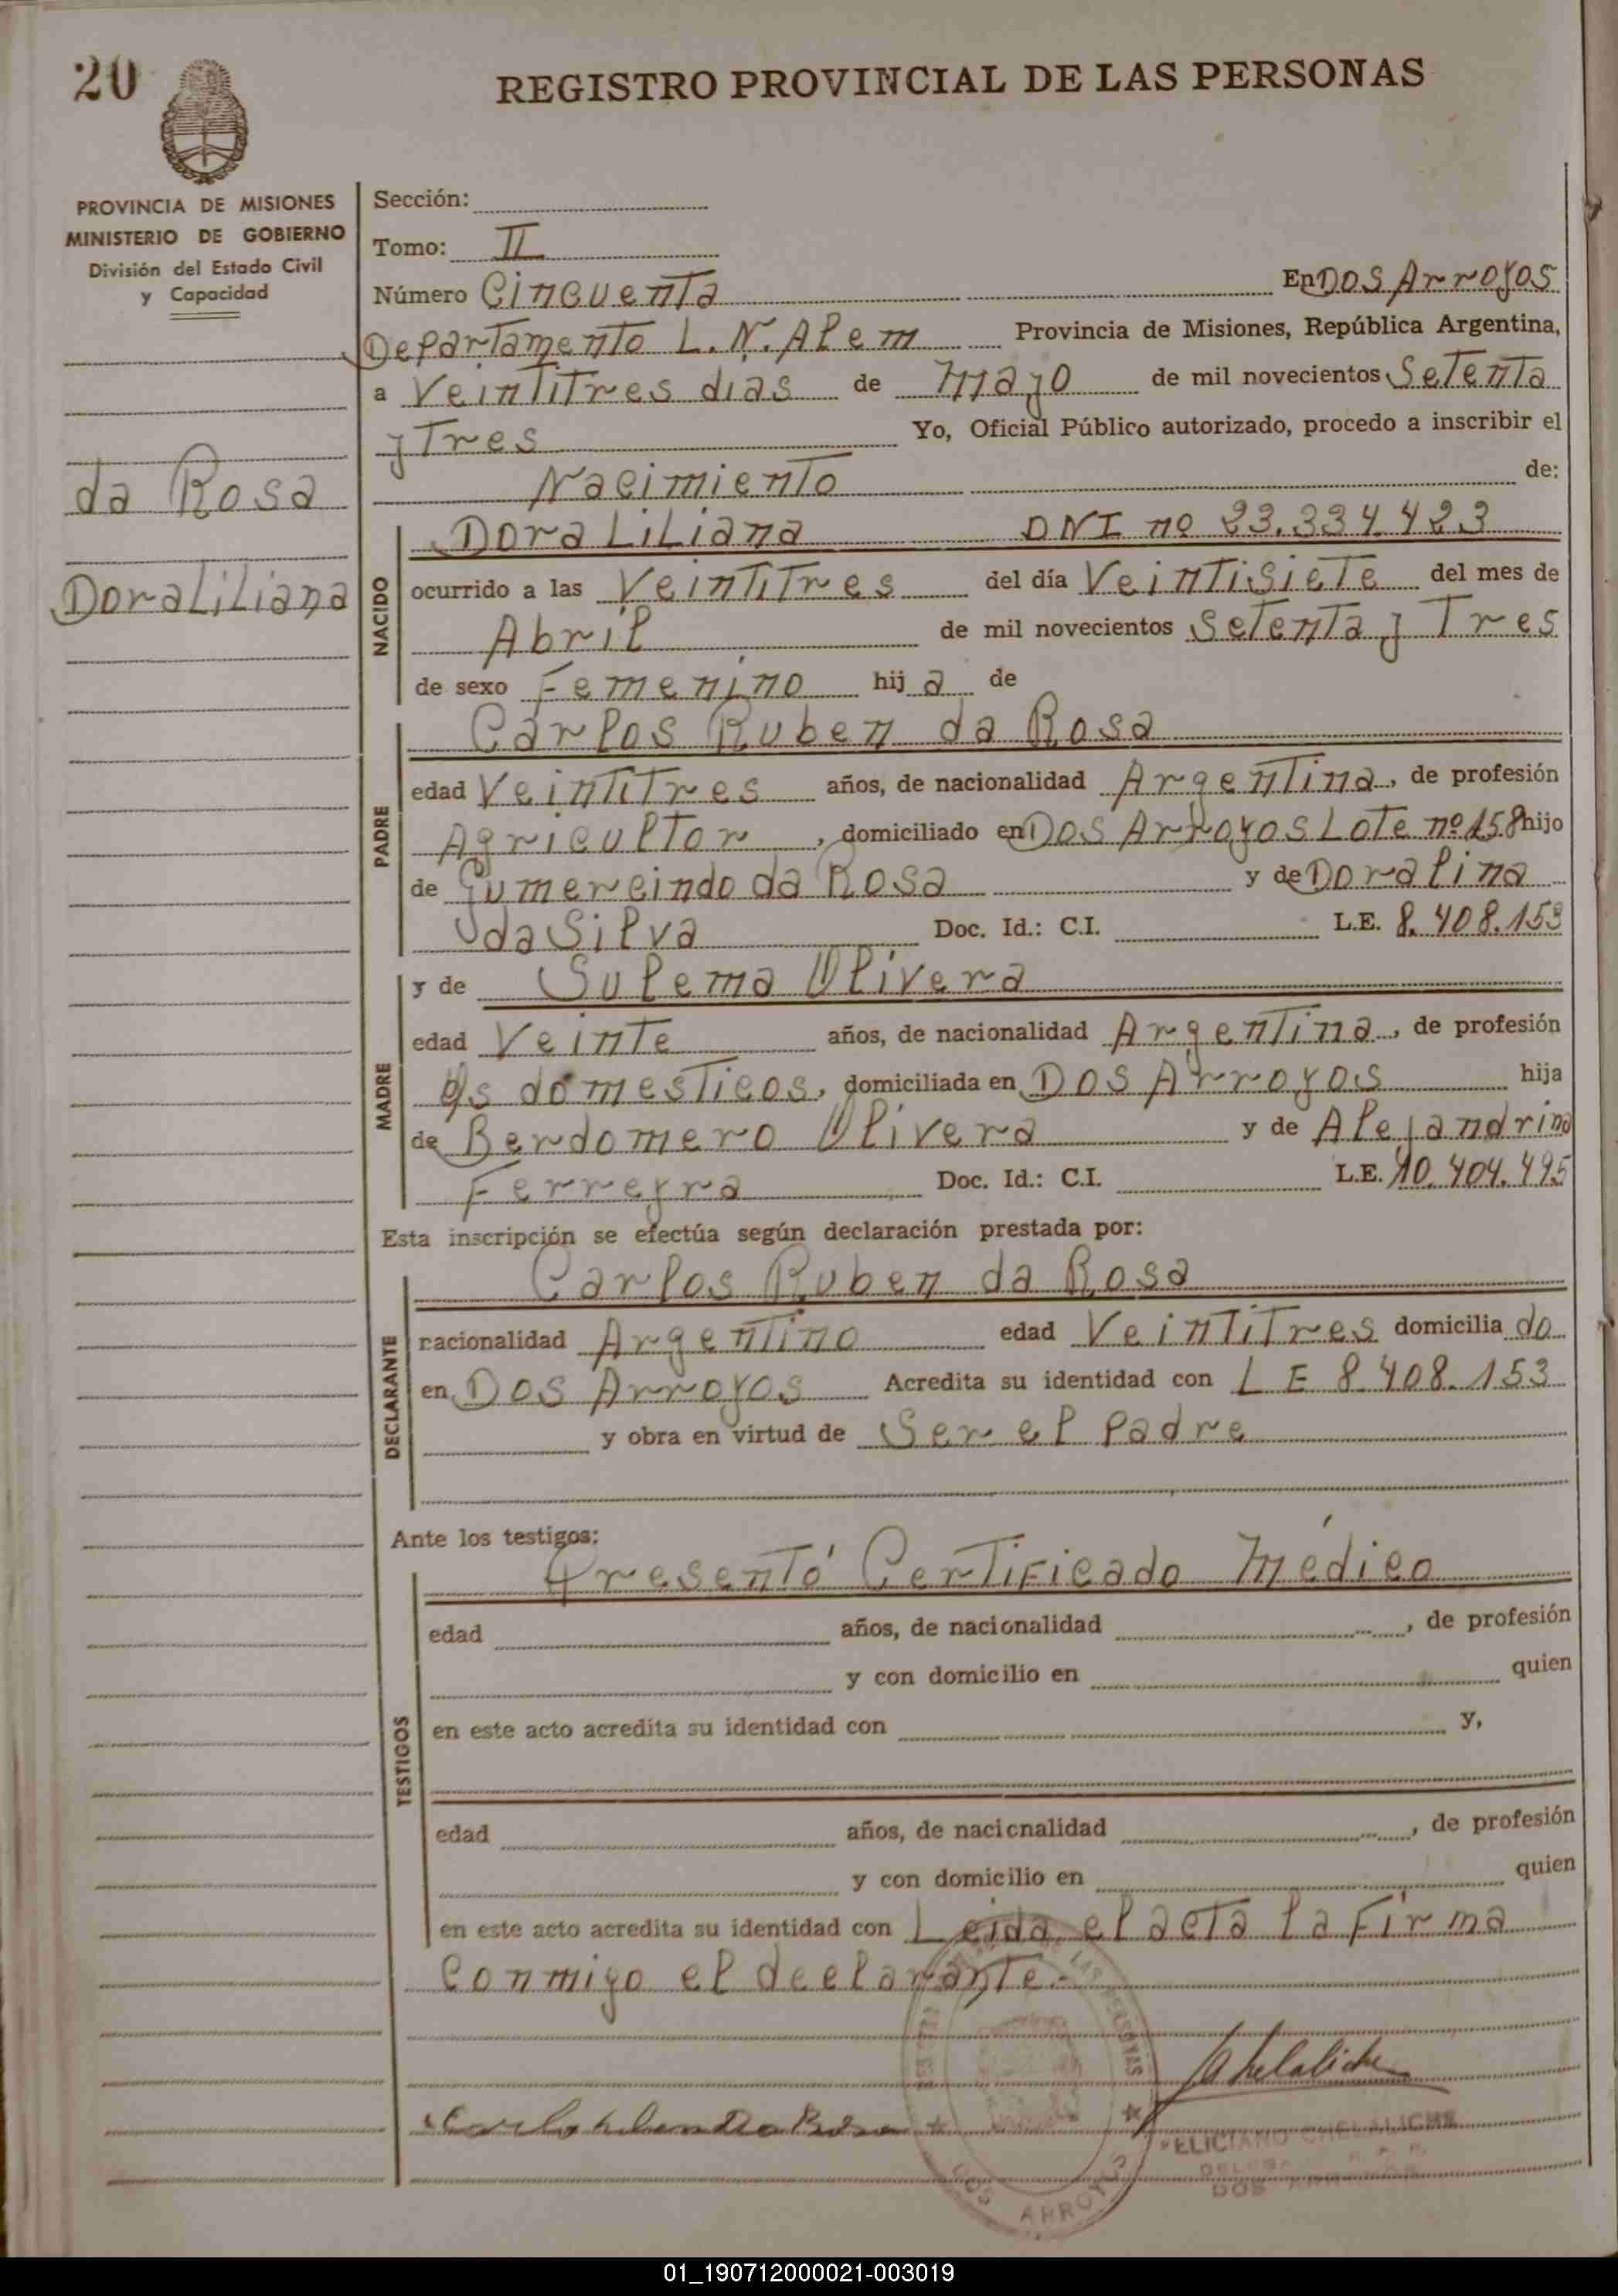 20
REGISTRO PROVINCIAL DE LAS PERSONAS
PROVINCIA DE MISIONES
MINISTERIO DE GOBIERNO
División del Estado Civil
y Capacidad
da Rosa
Dora Liliana
Sección:
Tomo: II
Número Cincuenta En Dos Arroyos
Departamento L. N. Alem Provincia de Misiones, República Argentina,
a Veintitres dias de mayo de mil novecientos Setenta
y Tres Yo, Oficial Público autorizado, procedo a inscribir el
Nacimiento de:
NACIDO
Dora Liliana DNI nº 23.334.423
ocurrido a las Veintitres del día Veintisiete del mes de
Abril de mil novecientos Setenta y Tres
de sexo Femenino hij a de
PADRE
Carlos Ruben da Rosa
edad Veintitres años, de nacionalidad Argentina, de profesión
Agricultor, domiciliado en Dos Arroyos Lote nº 158 hijo
de Gumercindo da Rosa y de Doralina
da Silva Doc. Id.: C.I. L.E. 8.408.153
MADRE
y de Sulema Olivera
edad Veinte años, de nacionalidad Argentina, de profesión
q/s domesticos, domiciliada en Dos Arroyos hija
de Berdomero Olivera y de Alejandrina
Ferreyra Doc. Id.: C.I. L.E. 10.404.495
Esta inscripción se efectúa según declaración prestada por:
DECLARANTE
Carlos Ruben da Rosa
nacionalidad Argentino edad Veintitres domicilia do
en Dos Arroyos Acredita su identidad con L E 8 408.153
y obra en virtud de Ser el Padre
Ante los testigos:
TESTIGOS
Presentó Certificado Médico
edad años, de nacionalidad , de profesión
y con domicilio en quien
en este acto acredita su identidad con y,
edad años, de nacionalidad , de profesión
y con domicilio en quien
en este acto acredita su identidad con Leida el acta la Firma
Conmigo el declarante.-
FELICIANO CHELALICHE
DOS ARROYOS
01_190712000021-003019